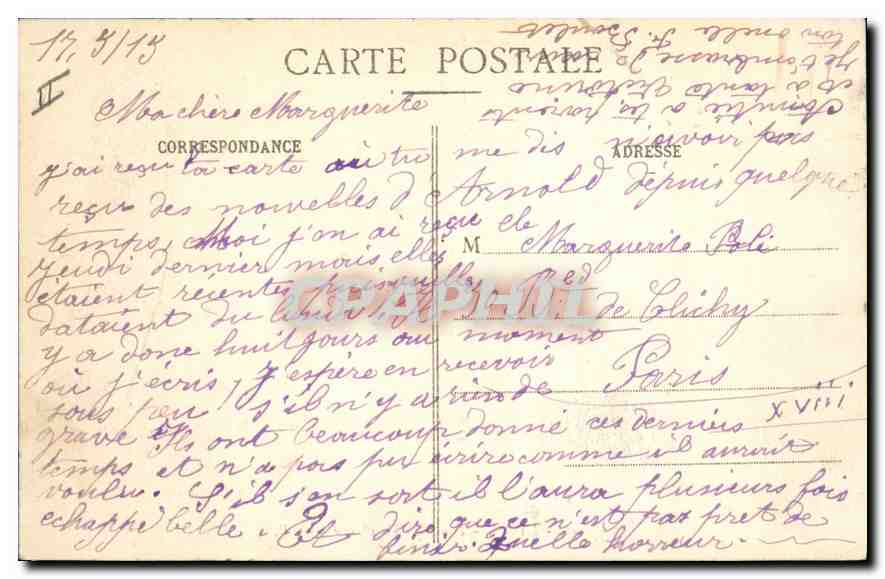 17.5/15
II
CARTE POSTALE
Ma chère Marguerite
CORRESPONDANCE
ADRESSE
j'ai reçu ta carte où tu me dis avoir pas
reçu des nouvelles d'Arnold depuis quelque
temps, Moi j'm ai reçu de
jeudi dernier mais elles
étaient recentes puisqu'elles
dataient du
y a donc huit jours au moment
où j'écris, J'espère en recevoir
sous peu, s'il n'y a rien de
grave Ils ont beaucoup donné ces derniers
temps et n'a pas pu écrire comme il aurait
voulu. S'il s'en sort il l'aura plusieurs fois
echappé belle. Et dire que ce n'est pas pret de
finir. Quelle horreur.
M Marguerite Poli
Bed de Clichy
Paris
XVIII
CPAPHIL
Amitié a tes parents
et a tante Victorine
Je t'embrasse
ton oncle